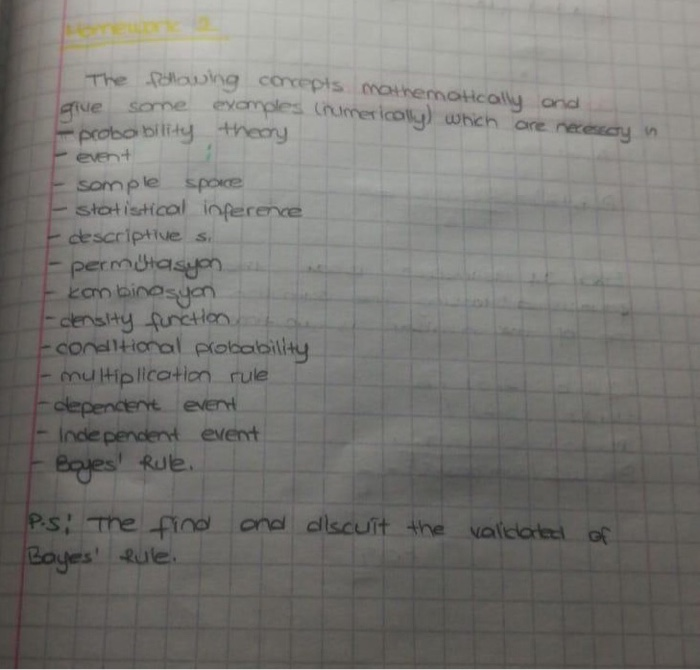 Homework 2
The following concepts mathematically and
give some examples (numerically) which are necessary in
- probability theory
- event
- sample space
- statistical inference
- descriptive s.
- permütasyon
- kombinasyon
- density function
- conditional probability
- multiplication rule
- dependent event
- independent event
- Bayes' Rule.
P.S: The find and discuit the validated of
Bayes' Rule.